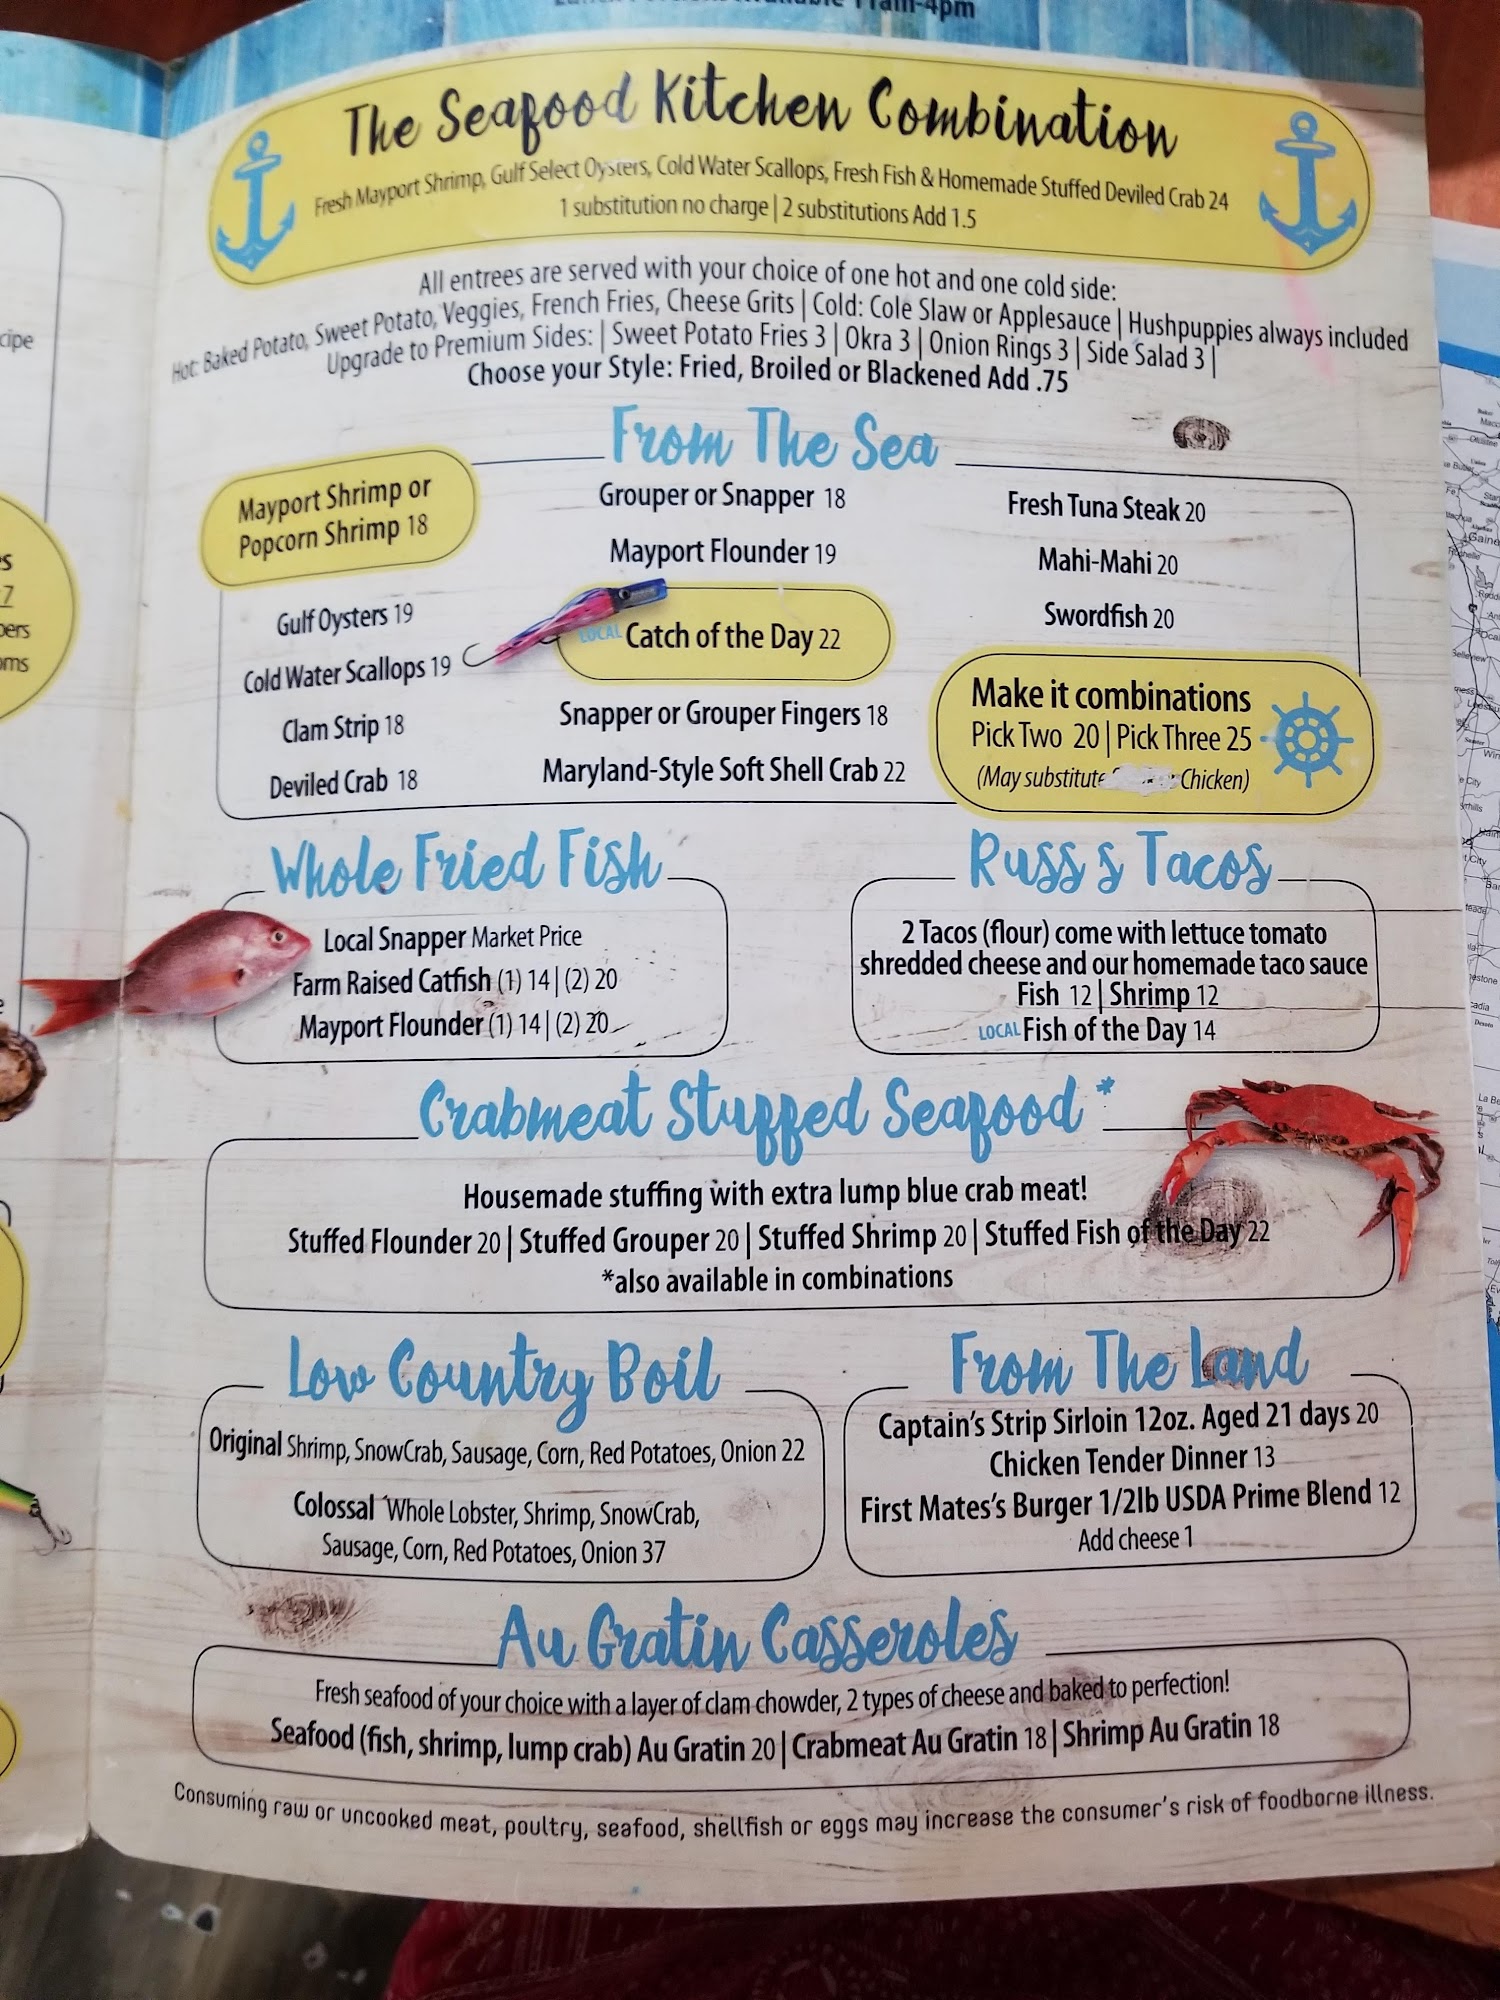 Available 11am-4pm
The Seafood Kitchen Combination
Fresh Mayport Shrimp, Gulf Select Oysters, Cold Water Scallops, Fresh Fish & Homemade Stuffed Deviled Crab 24
1 substitution no charge | 2 substitutions Add 1.5
All entrees are served with your choice of one hot and one cold side:
Hot: Baked Potato, Sweet Potato, Veggies, French Fries, Cheese Grits | Cold: Cole Slaw or Applesauce | Hushpuppies always included
Upgrade to Premium Sides: | Sweet Potato Fries 3 | Okra 3 | Onion Rings 3 | Side Salad 3 |
Choose your Style: Fried, Broiled or Blackened Add .75
From The Sea
Mayport Shrimp or
Popcorn Shrimp 18
Gulf Oysters 19
Cold Water Scallops 19
Clam Strip 18
Deviled Crab 18
Grouper or Snapper 18
Mayport Flounder 19
LOCAL Catch of the Day 22
Snapper or Grouper Fingers 18
Maryland-Style Soft Shell Crab 22
Fresh Tuna Steak 20
Mahi-Mahi 20
Swordfish 20
Make it combinations
Pick Two 20 | Pick Three 25
(May substitute Chicken)
Whole Fried Fish
Local Snapper Market Price
Farm Raised Catfish (1) 14 | (2) 20
Mayport Flounder (1) 14 | (2) 20
Russ s Tacos
2 Tacos (flour) come with lettuce tomato
shredded cheese and our homemade taco sauce
Fish 12 | Shrimp 12
LOCAL Fish of the Day 14
Crabmeat Stuffed Seafood *
Housemade stuffing with extra lump blue crab meat!
Stuffed Flounder 20 | Stuffed Grouper 20 | Stuffed Shrimp 20 | Stuffed Fish of the Day 22
*also available in combinations
Low Country Boil
Original Shrimp, SnowCrab, Sausage, Corn, Red Potatoes, Onion 22
Colossal Whole Lobster, Shrimp, SnowCrab,
Sausage, Corn, Red Potatoes, Onion 37
From The Land
Captain's Strip Sirloin 12oz. Aged 21 days 20
Chicken Tender Dinner 13
First Mates's Burger 1/2lb USDA Prime Blend 12
Add cheese 1
Au Gratin Casseroles
Fresh seafood of your choice with a layer of clam chowder, 2 types of cheese and baked to perfection!
Seafood (fish, shrimp, lump crab) Au Gratin 20 | Crabmeat Au Gratin 18 | Shrimp Au Gratin 18
Consuming raw or uncooked meat, poultry, seafood, shellfish or eggs may increase the consumer's risk of foodborne illness.